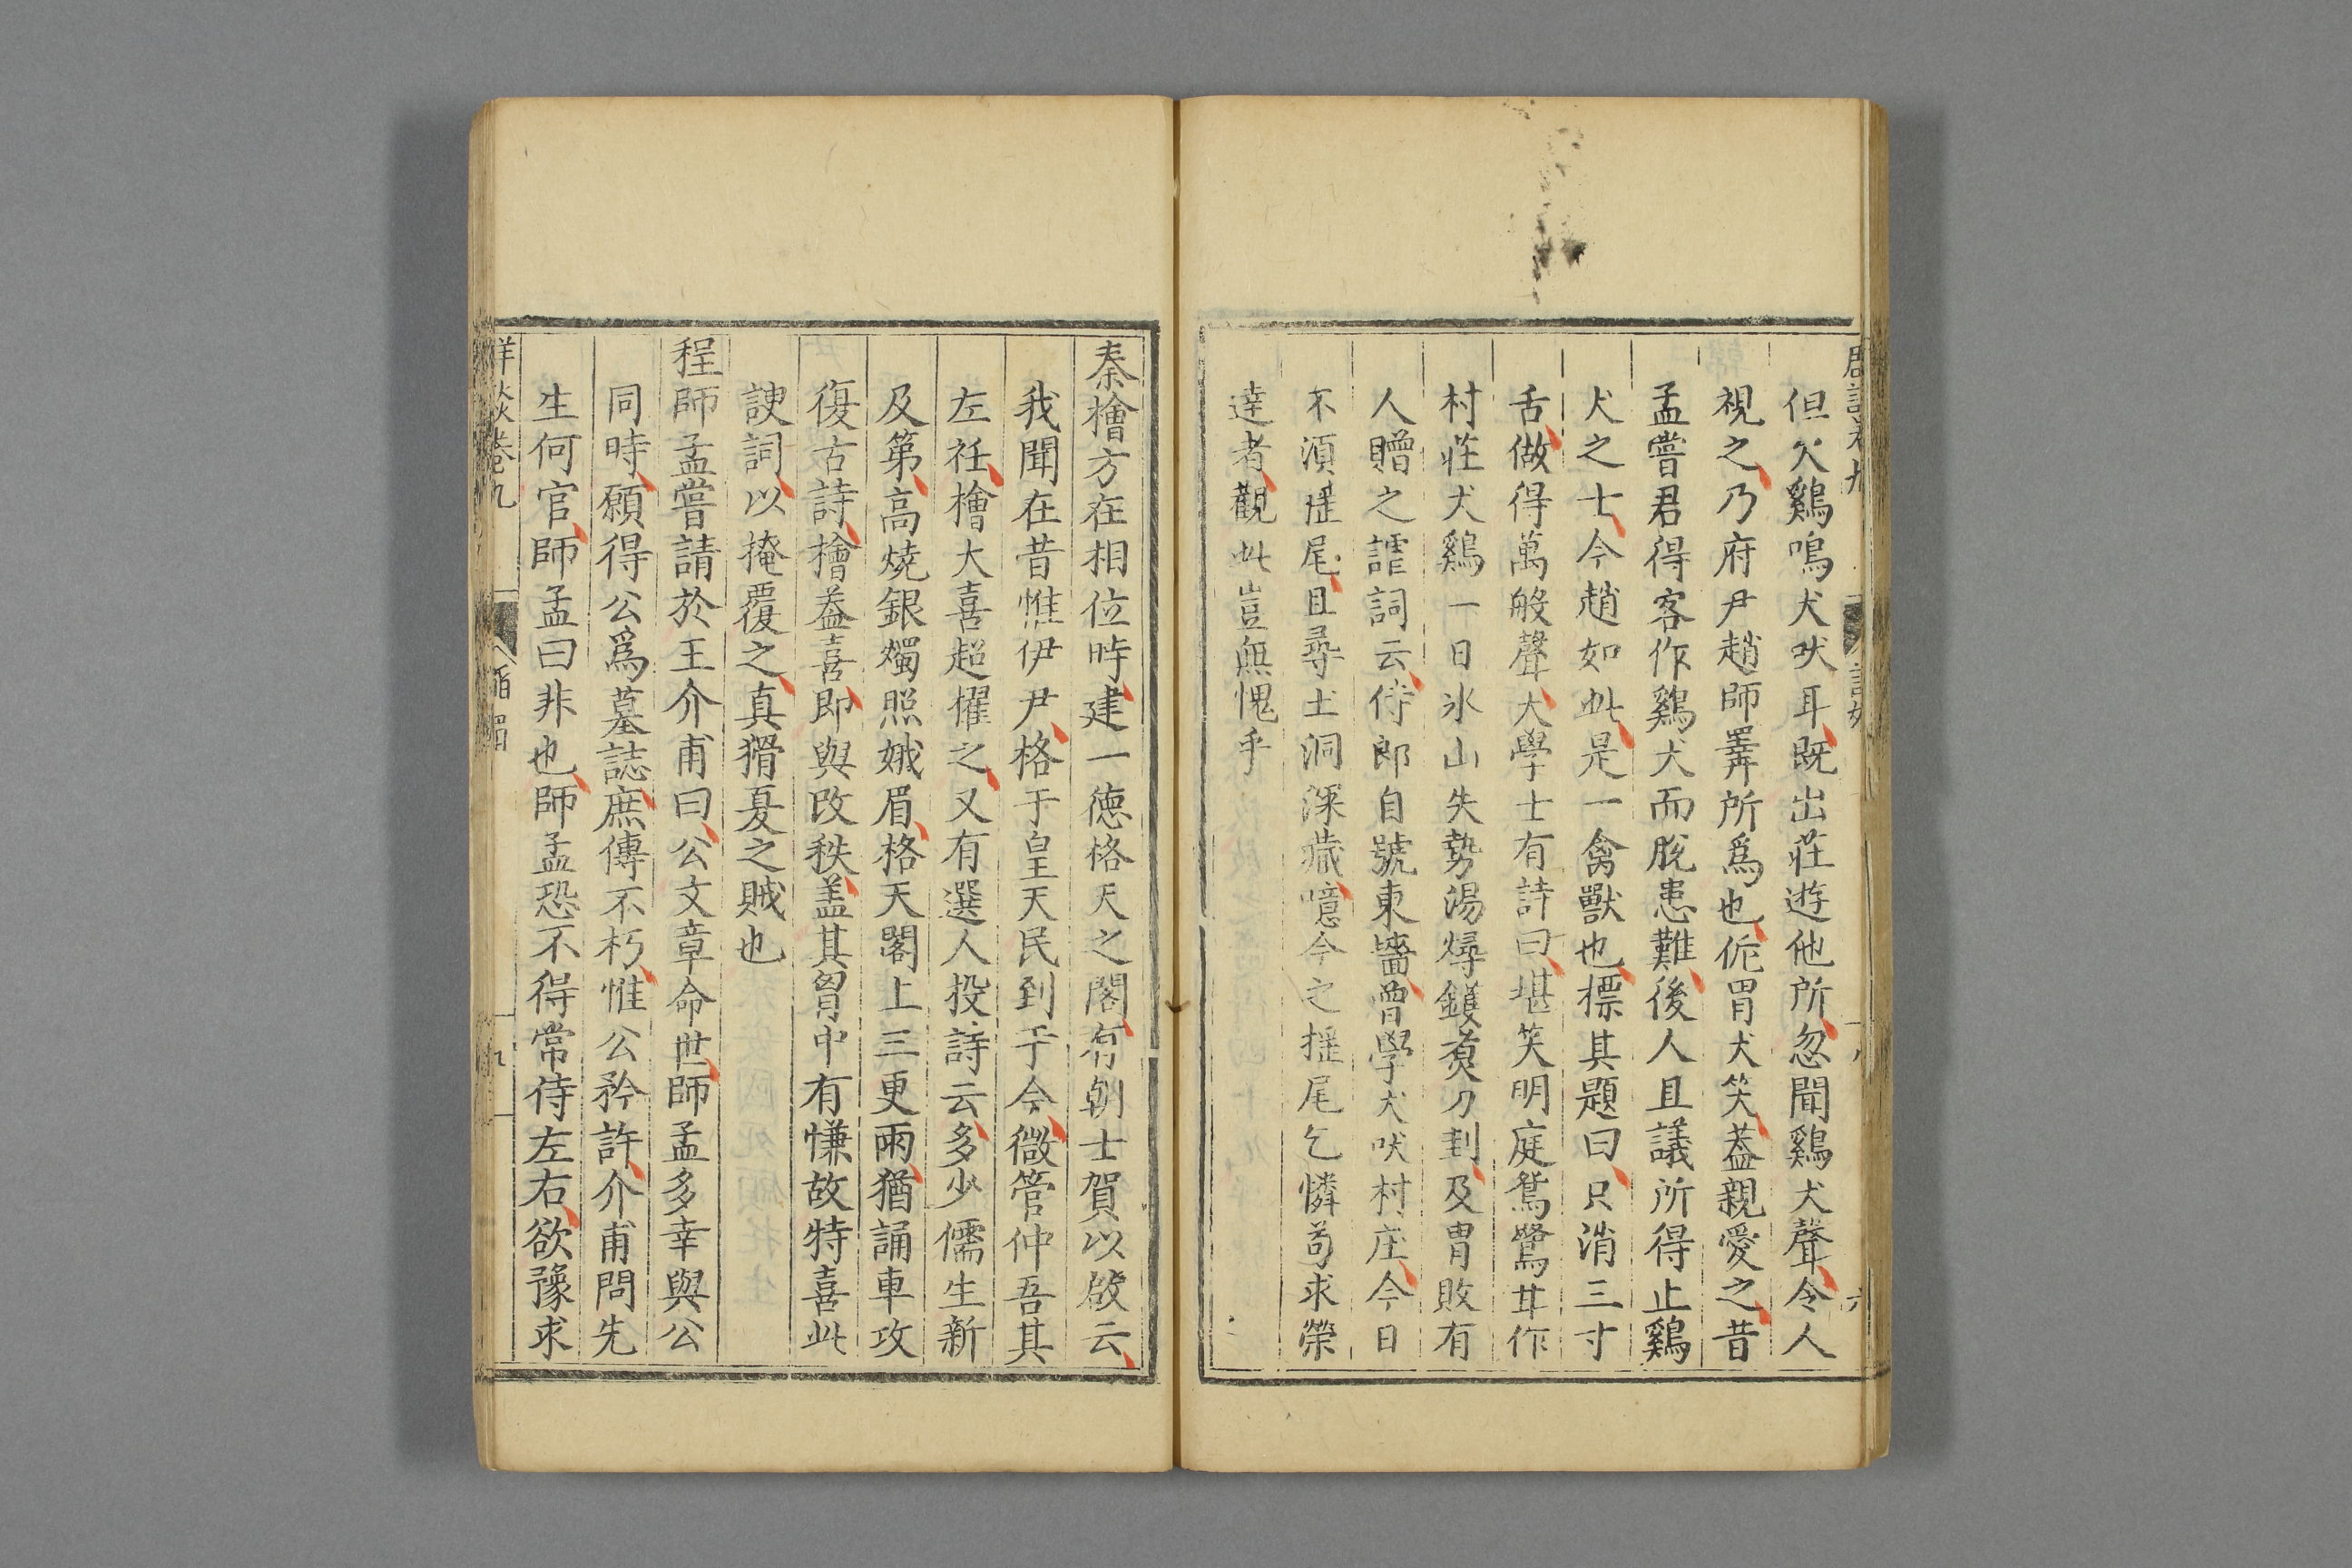 但欠鷄鳴犬吠耳既出莊遊他所忽聞鷄犬聲令人
視之乃府尹趙師𢍰所爲也侂胄犬笑葢親愛之昔
孟嘗君得客作鷄犬而脫患難後人且議所得止鷄
犬之士今趙如此是一禽獸也標其題曰只消三寸
舌做得萬般聲大學士有詩曰堪笑明庭鴛鷺甘作
村莊犬鷄一日氷山失勢湯燖鑊煑刀刲及胄敗有
人贈之謔詞云侍郎自號東牆曾學犬吠村庄今日
不須揺尾且尋土洞深藏噫今之揺尾乞憐苟求榮
達者觀此豈無愧乎
秦檜方在相位時建一德格天之閣有朝士賀以啟云
我聞在昔惟伊尹格于皇天民到于今微管仲吾其
左衽檜大喜超擢之又有選人投詩云多少儒生新
及第高燒銀燭照娥眉格天閣上三更雨猶誦車攻
復古詩檜益喜即與改秩盖其胷中有慊故特喜此
諛詞以掩覆之真猾夏之賊也
程師孟嘗請於王介甫曰公文章命世師孟多幸與公
同時願得公爲墓誌庶傳不朽惟公矜許介甫問先
生何官師孟曰非也師孟恐不得常侍左右欲豫求
卷九